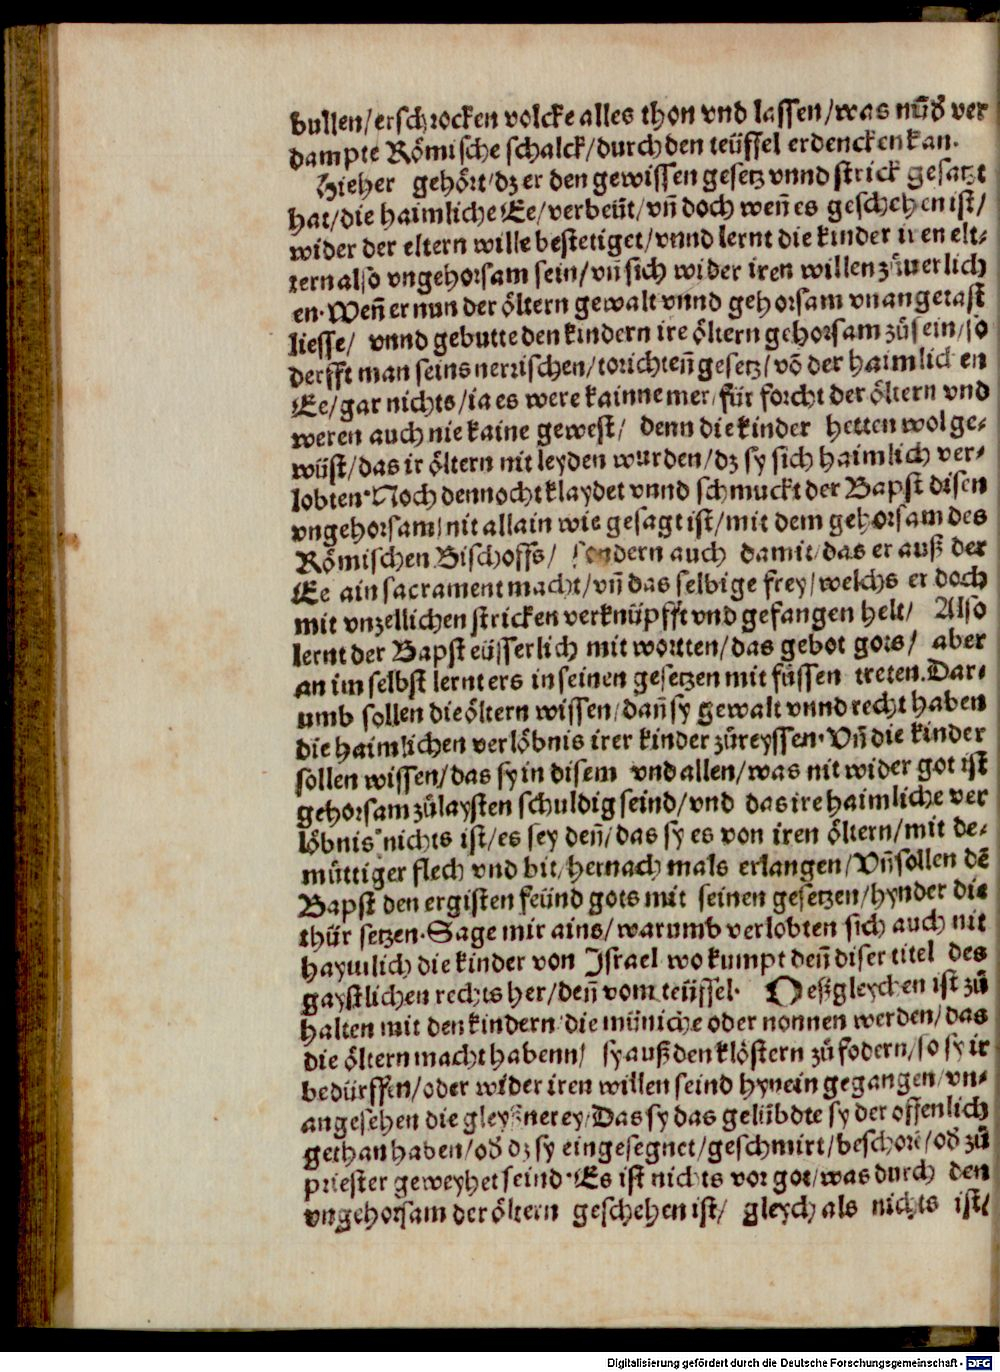 bullen/ erschrocken volcke alles thon vnd lassen/ was nũ d̕ ver
dampte Rômische schalck/ durch den teüffel erdencken kan.
Hieher gehôrt/ dz er den gewissen gesetz vnnd strick gesatzt
hat/ die haimliche Ee/ verbeüt/ vñ doch weñ es geschehen ist/
wider der eltern wille bestetiget/ vnnd lernt die kinder iren elt⸗
rern also vngehorsam sein/ vñ sich wider iren willen zůuerlich
en. Weñ er nun der ôltern gewalt vnnd gehorsam vnangetast
liesse/ vnnd gebutte den kindern ire ôltern gehorsam zů sein/ so
derfft man seins nerrischen/ torichteñ gesetz/ võ der haimlich en
Ee/ gar nichts/ ia es were kainne mer/ für forcht der ôltern vnd
weren auch nie kaine gewest/ denn die kinder hetten wol ge⸗
wüst/ das ir ôltern nit leyden wurden/ dz sy sich haimlich ver⸗
lobten. Noch dennocht klaydet vnnd schmuckt der Bapst disen
vngehorsam/ nit allain wie gesagt ist/ mit dem gehorsam des
Rômischen Bischoffs/ sondern auch damit/ das er auß der
Ee ain sacrament macht/ vñ das selbige frey/ welchs er doch
mit vnzellichen stricken verknüpfft vnd gefangen helt/ Also
lernt der Bapst eüsserlich mit wortten/ das gebot gots/ aber
an im selbst lernt ers in seinen gesetzen mit füssen treten. Dar⸗
umb sollen die ôltern wissen/ dañ sy gewalt vnnd recht haben
die haimlichen verlôbnis irer kinder zůreyssen. Vñ die kinder
sollen wissen/ das sy in disem vnd allen/ was nit wider got ist
gehorsam zůlaysten schuldig seind/ vnd das ire haimliche ver
lôbnis nichts ist/ es sey deñ/ das sy es von iren ôltern/ mit de⸗
müttiger flech vnd bit/ hernach mals erlangen/ Vñ sollen dẽ
Bapst den ergisten feünd gots mit seinen gesetzen/ hynder die
thür setzen. Sage mir ains/ warumb verlobten sich auch nit
haymlich die kinder von Israel wo kumpt deñ diser titel des
gaystlichen rechts her/ deñ vom teüffel. Deßgleychen ist zů
halten mit den kindern/ die müniche oder nonnen werden/ das
die ôltern macht habenn/ sy auß den klôstern zů fodern/ so sy ir
bedürffen/ oder wider iren willen seind hynein gegangen/ vn⸗
angesehen die gleyßnerey/ Das sy das gelübdte sy der offenlich
gethan haben/ od̕ dz sy eingesegnet/ geschmirt/ beschorẽ/ od̕ zů
priester geweyhet seind. Es ist nichts vor got/ was durch den
vngehorsam der ôltern geschehen ist/ gleych als nichts ist/
Digitalisierung gefördert durch die Deutsche Forschungsgemeinschaft - DFG